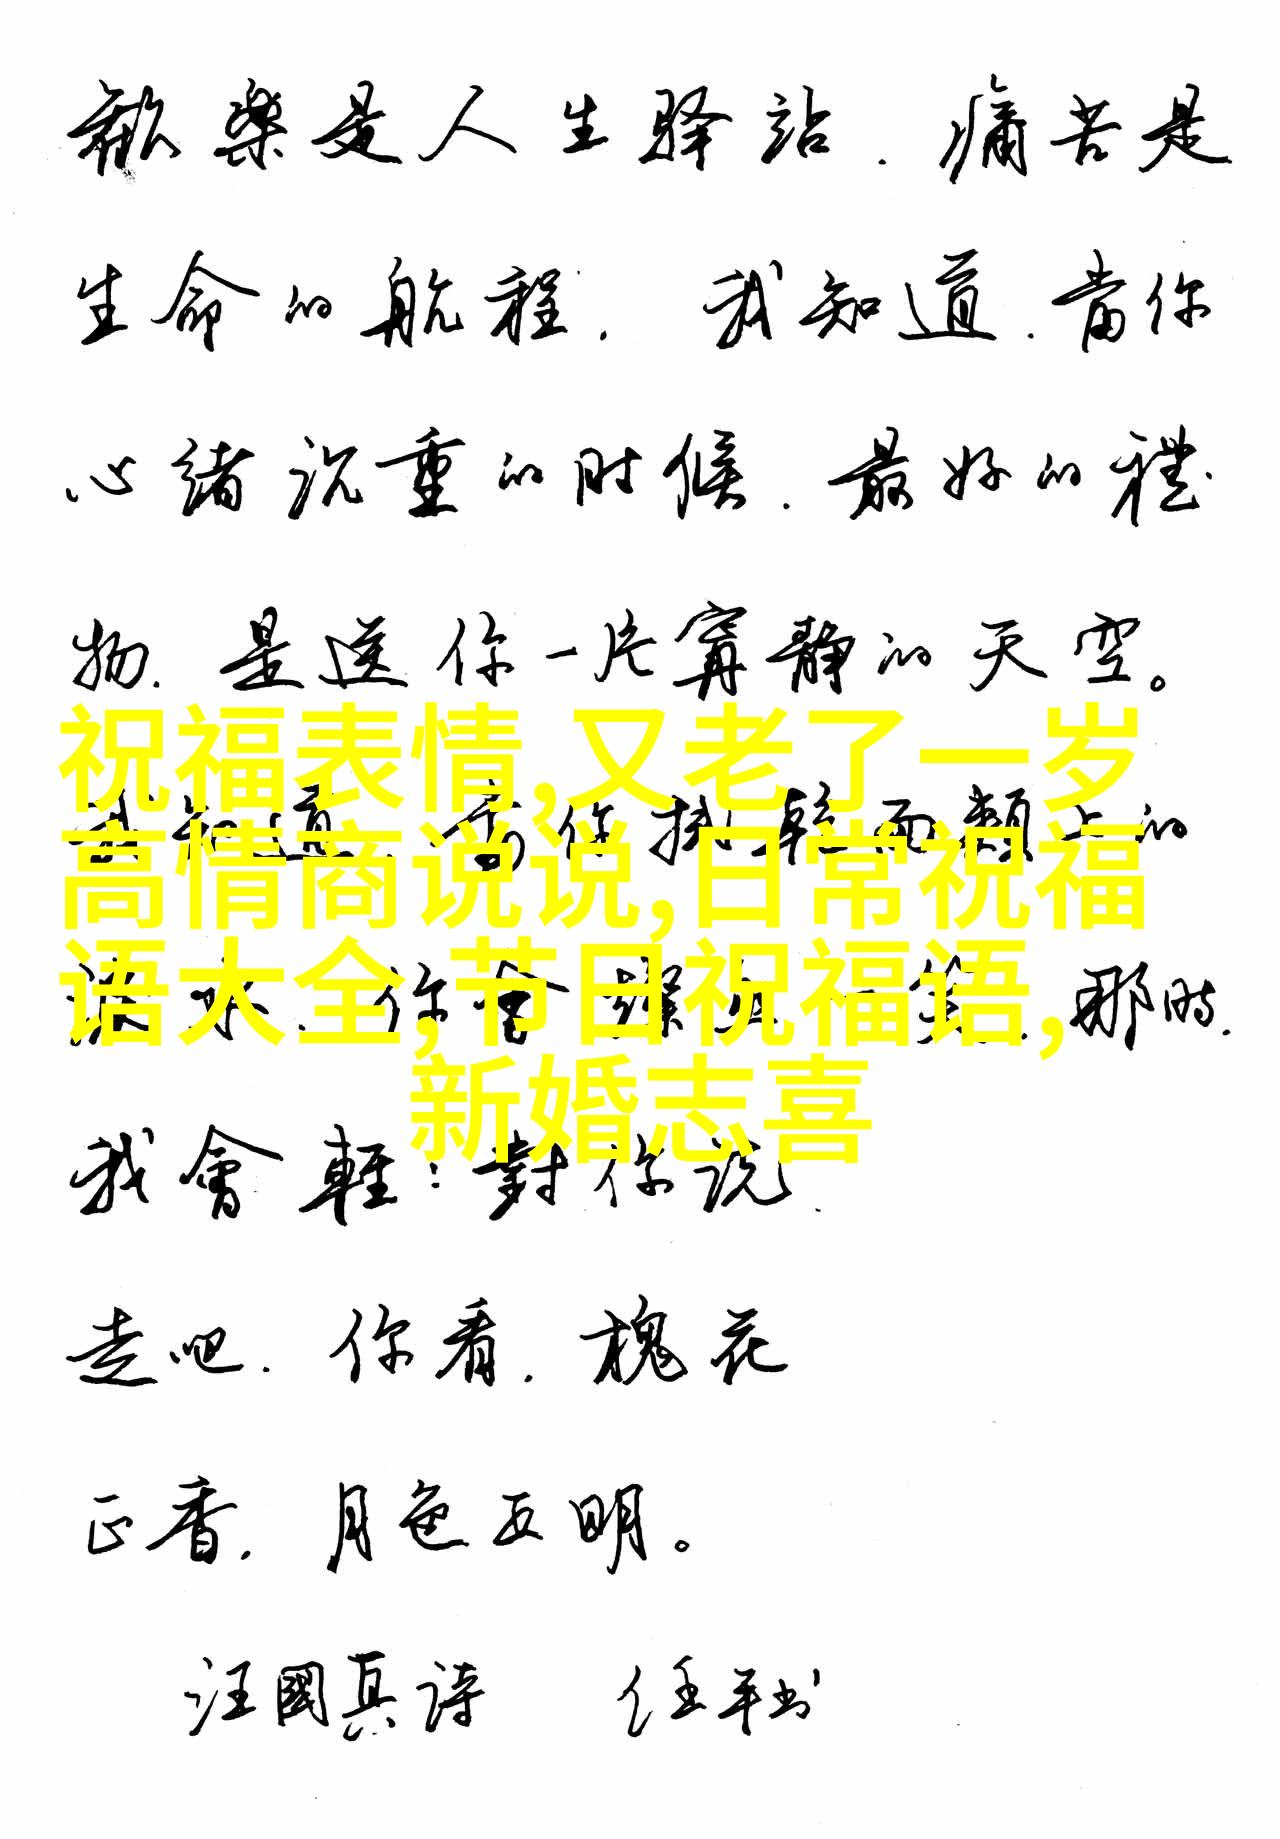 歡樂是人生驿站.痛苦是
生命的航程.我知道.當你
心緒沉重的时候.最好的禮
物.是送你一片寧靜的天空。
祝福表情,又老了一岁
我知道 當你 面頰上的
高情商说说,日常祝福
淚水.你會 那时.
语大全,节日祝福语,
新婚志喜
我會輕:對你说.
走吧.你看.槐花
正香.月色正明。
汪國真诗 任平书